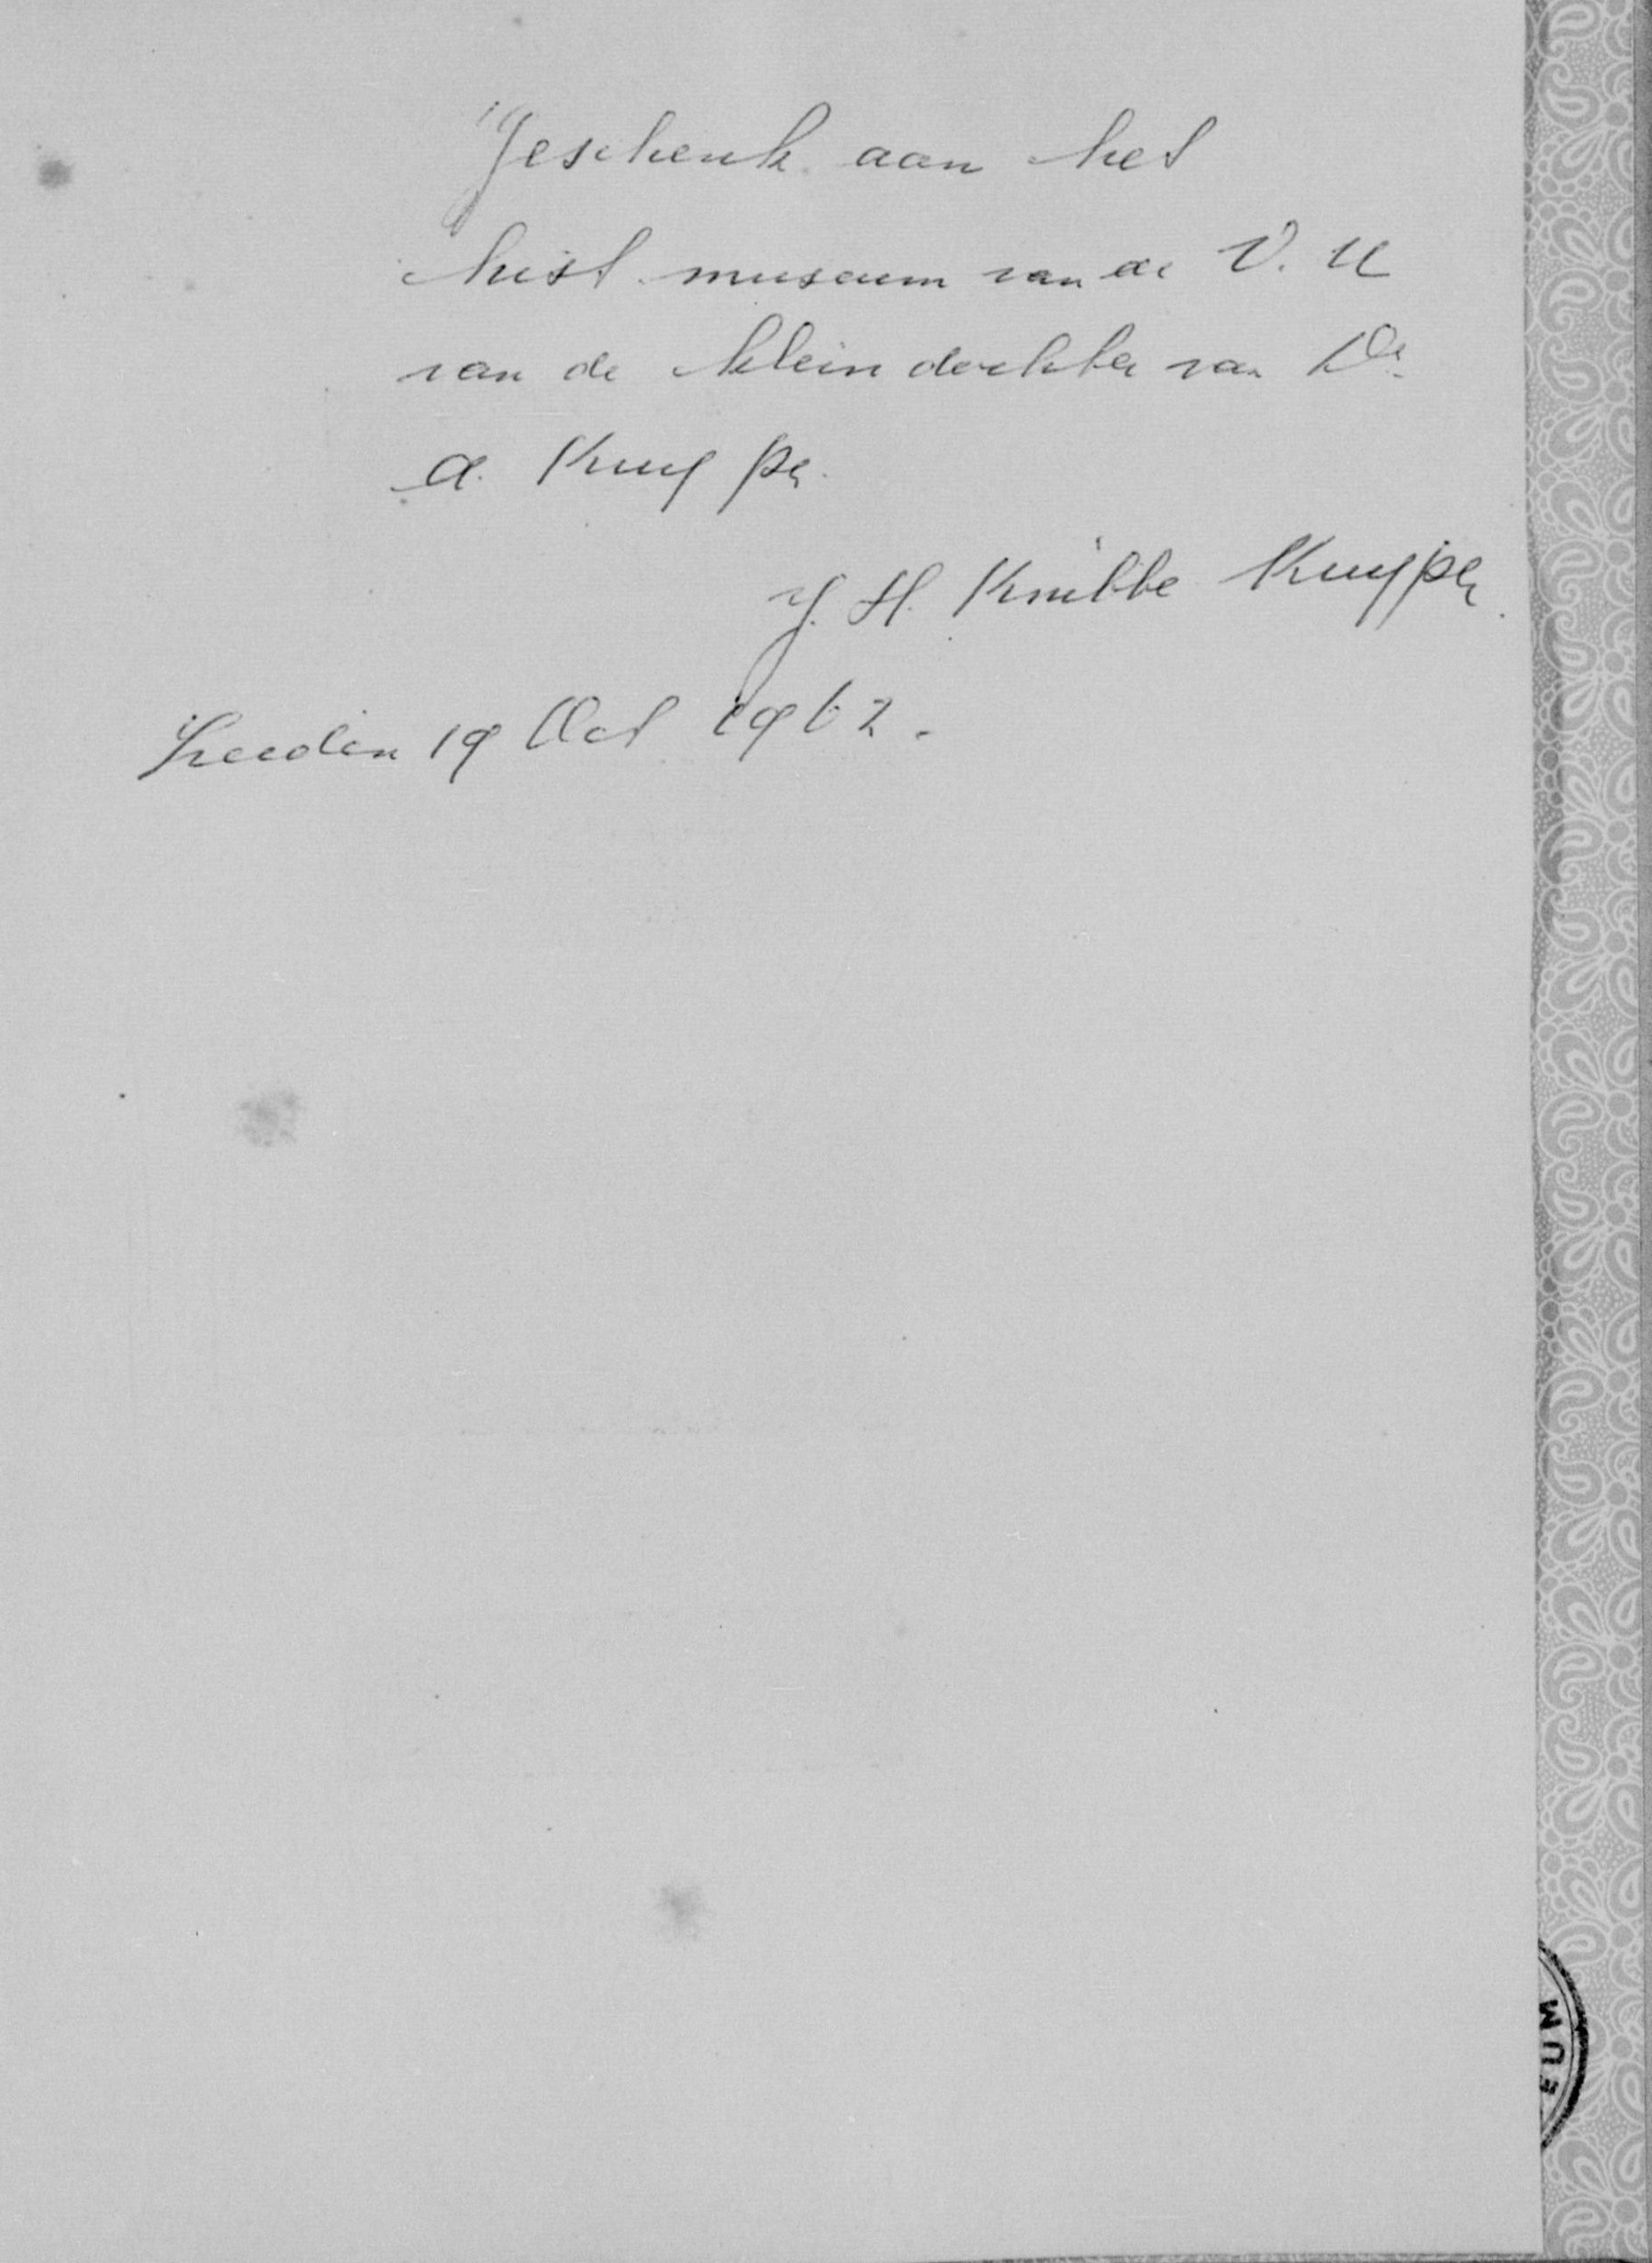 Geschenk aan het
hist. museum van de V. U
van de kleindochter van Dr.
A. Kuyper.
J. H. Knibbe Kuyper.
Leiden 19 Oct 1962.
EUM